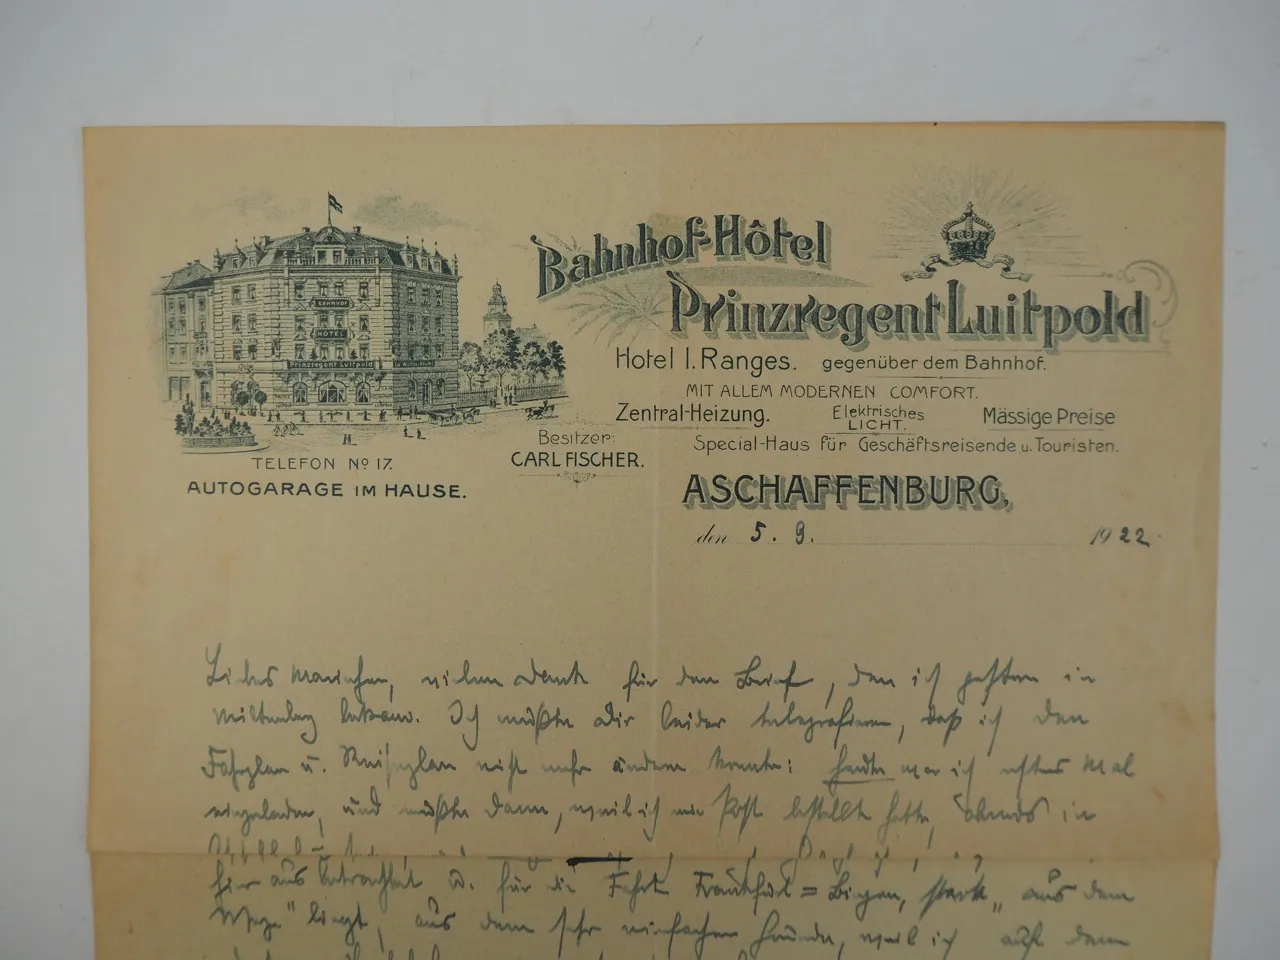 BAHNHOF
HOTEL
Prinzregent Luitpold
Bahnhof-Hôtel
Prinzregent Luitpold
Hotel I. Ranges. gegenüber dem Bahnhof.
MIT ALLEM MODERNEN COMFORT.
Zentral-Heizung. Elektrisches LICHT. Mässige Preise
Special-Haus für Geschäftsreisende u. Touristen.
Besitzer:
CARL FISCHER.
TELEFON No 17.
AUTOGARAGE IM HAUSE.
ASCHAFFENBURG,
den 5. 9. 1922.
Liebes Mariechen, vielen Dank für den Brief, den ich gestern in
Miltenberg bekam. Ich mußte Dir leider telegrafieren, daß ich den
Fahrplan u. Reiseplan nicht mehr ändern konnte: heute war ich erstes Mal
eingeladen, und mußte dann, weil ich die Post bestellt hatte, abends in
hier aus betrachtet u. für die Fahrt Frankfurt = Bingen, stark „aus dem
Wege" liegt, aus dem sehr einfachen Grunde, weil ich auf dem